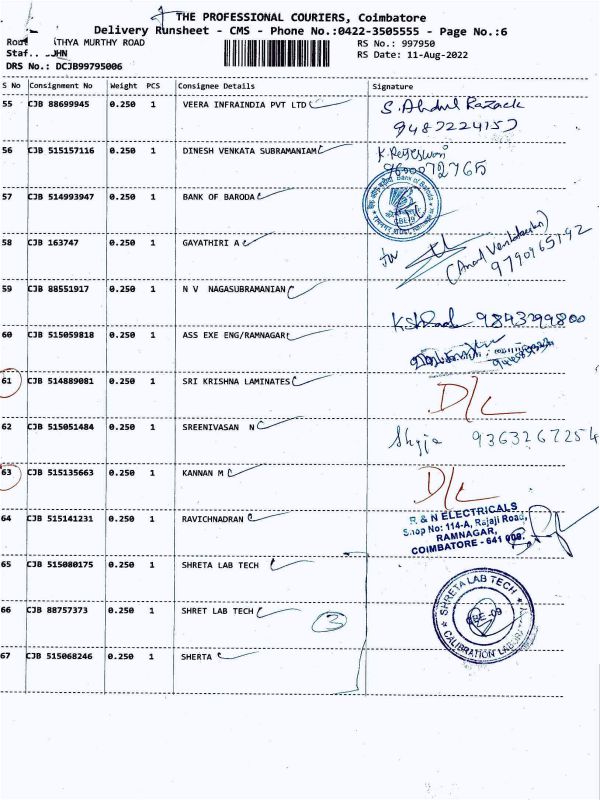 THE PROFESSIONAL COURIERS, Coimbatore
Delivery Runsheet - CMS - Phone No.:0422-3505555 - Page No.:6
THYA MURTHY ROAD
RS No.: 997950
RS Date: 11-Aug-2022
DRS No.: DCJB99795006
S No Consignment No Weight PCS Consignee Details Signature
55 CJB 88699945 0.250 1 VEERA INFRAINDIA PVT LTD S. Abdul Razack
9487224157
56 CJB 515157116 0.250 1 DINESH VENKATA SUBRAMANIAM
9600072765
57 CJB 514993947 0.250 1 BANK OF BARODA Bank of Baroda
58 CJB 163747 0.250 1 GAYATHIRI A for
9790965192
59 CJB 88551917 0.250 1 N V NAGASUBRAMANIAN
9843299800
60 CJB 515059818 0.250 1 ASS EXE ENG/RAMNAGAR
61 CJB 514889081 0.250 1 SRI KRISHNA LAMINATES D/L
62 CJB 515051484 0.250 1 SREENIVASAN N 9363267254
63 CJB 515135663 0.250 1 KANNAN M D/L
64 CJB 515141231 0.250 1 RAVICHNADRAN R & N ELECTRICALS
Shop No: 114-A, Rajaji Road,
RAMNAGAR,
COIMBATORE - 641 009.
65 CJB 515080175 0.250 1 SHRETA LAB TECH
66 CJB 88757373 0.250 1 SHRET LAB TECH 3
SHRETA LAB TECH
CBE-09
CALIBRATION LABORATORY
67 CJB 515068246 0.250 1 SHERTA